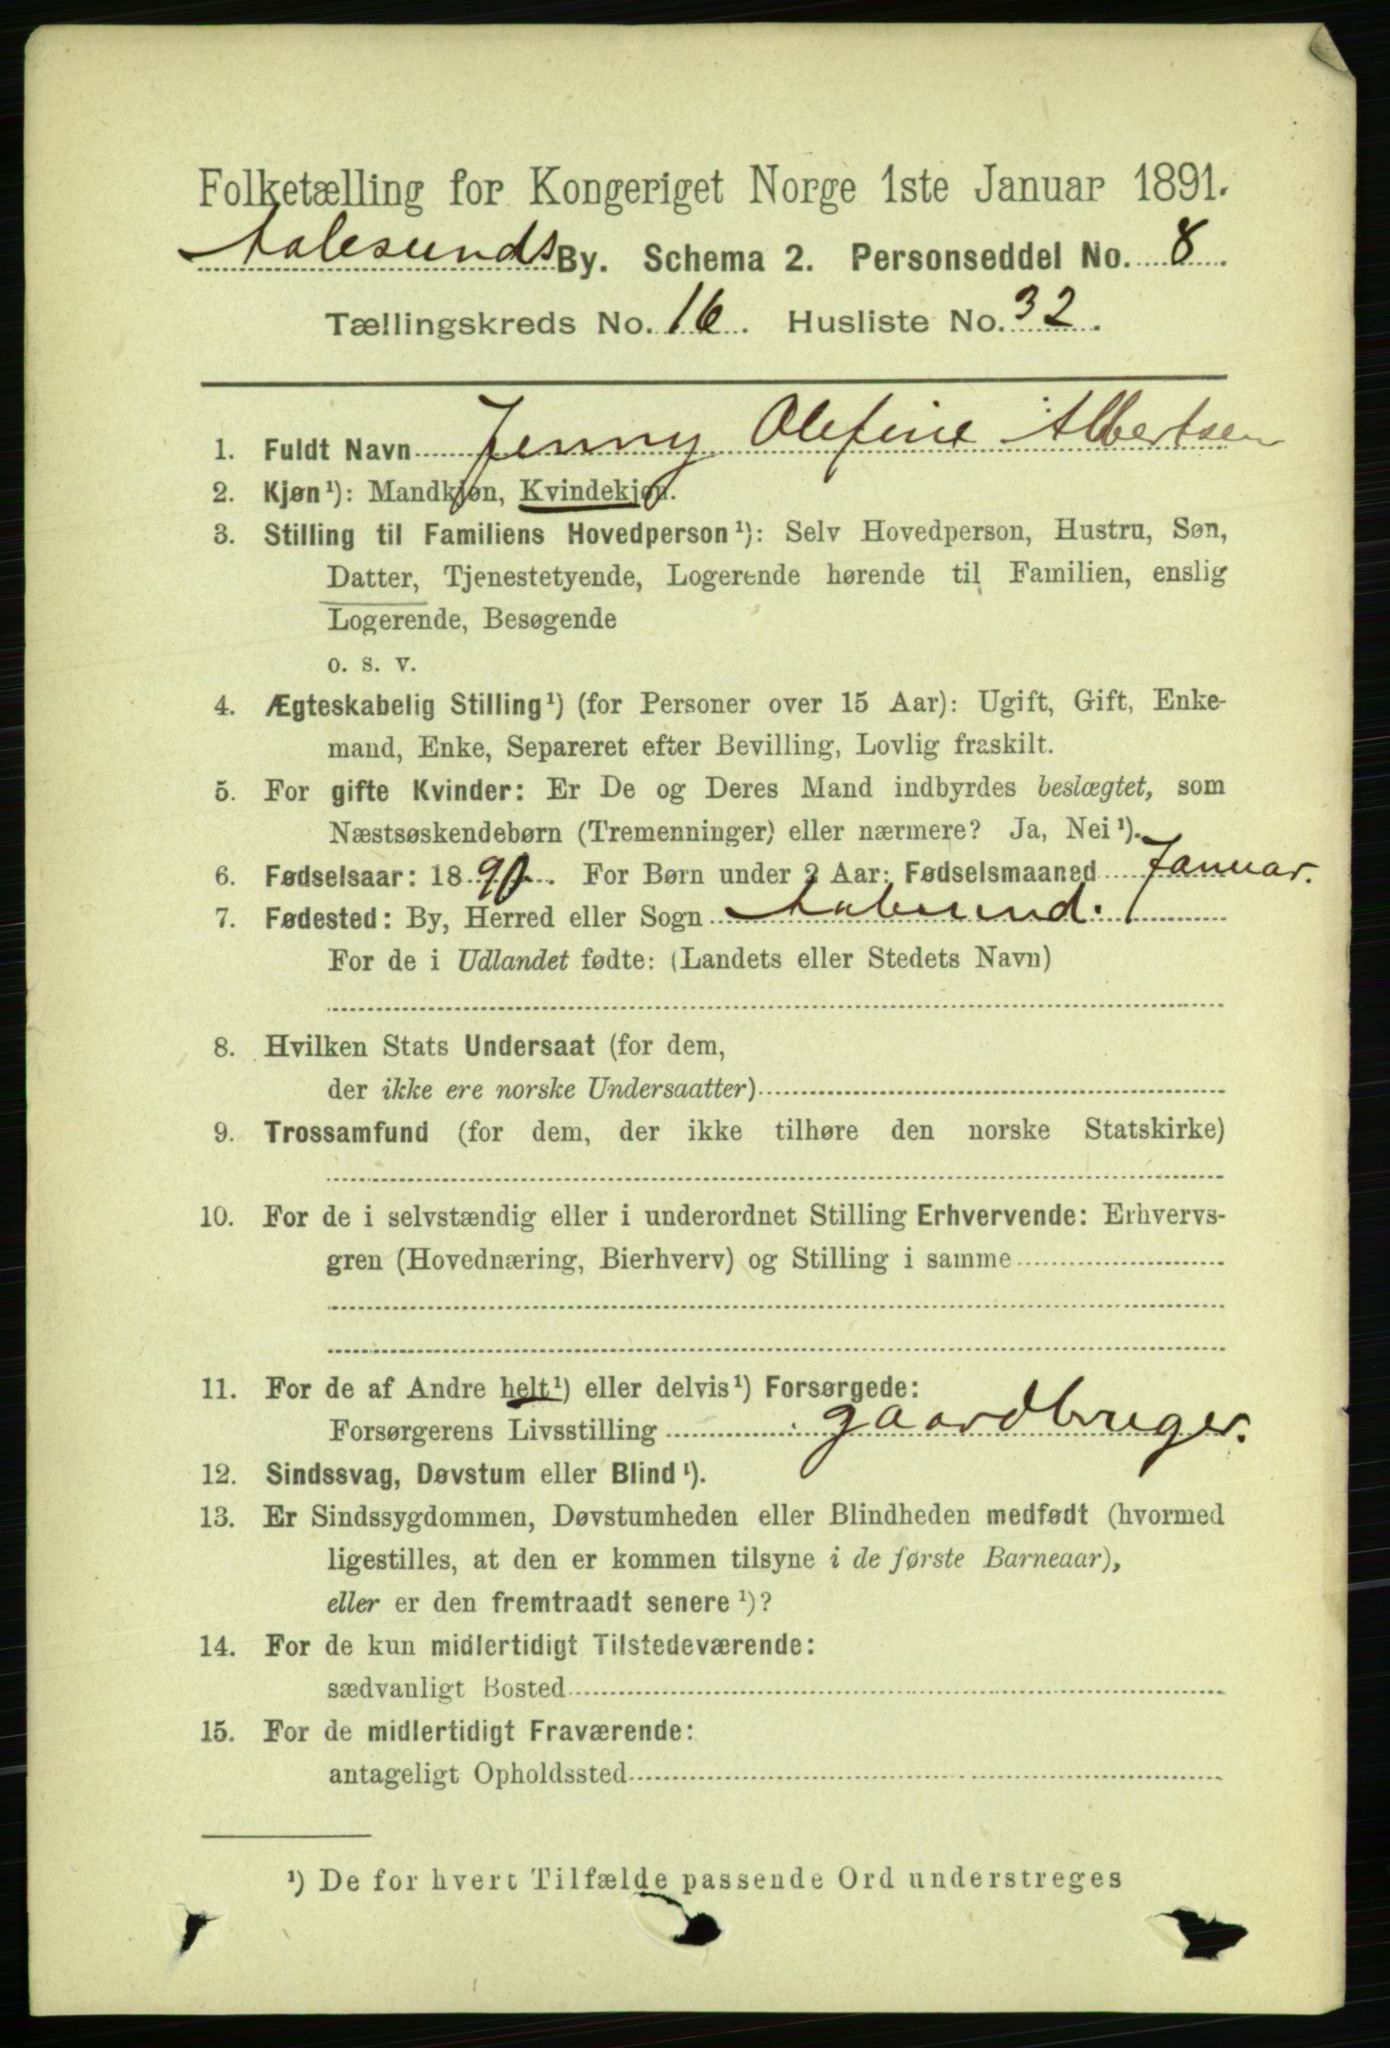 Folketælling for Kongeriget Norge 1ste Januar 1891.
Aalesunds By. Schema 2. Personseddel No. 8.
Tællingskreds No. 16. Husliste No. 32.
1. Fuldt Navn Jenny Olefine Albertsen
2. Kjøn¹): Mandkjøn, Kvindekjøn.
3. Stilling til Familiens Hovedperson¹): Selv Hovedperson, Hustru, Søn,
Datter, Tjenestetyende, Logerende hørende til Familien, enslig
Logerende, Besøgende
o. s. v.
4. Ægteskabelig Stilling¹) (for Personer over 15 Aar): Ugift, Gift, Enke-
mand, Enke, Separeret efter Bevilling, Lovlig fraskilt.
5. For gifte Kvinder: Er De og Deres Mand indbyrdes beslægtet, som
Næstsøskendebørn (Tremenninger) eller nærmere? Ja, Nei¹).
6. Fødselsaar: 1890. For Børn under 2 Aar: Fødselsmaaned Januar.
7. Fødested: By, Herred eller Sogn Aalesund.
For de i Udlandet fødte: (Landets eller Stedets Navn)
8. Hvilken Stats Undersaat (for dem,
der ikke ere norske Undersaatter)
9. Trossamfund (for dem, der ikke tilhøre den norske Statskirke)
10. For de i selvstændig eller i underordnet Stilling Erhvervende: Erhvervs-
gren (Hovednæring, Bierhverv) og Stilling i samme
11. For de af Andre helt¹) eller delvis¹) Forsørgede:
Forsørgerens Livsstilling gaardbruger.
12. Sindssvag, Døvstum eller Blind¹).
13. Er Sindssygdommen, Døvstumheden eller Blindheden medfødt (hvormed
ligestilles, at den er kommen tilsyne i de første Barneaar),
eller er den fremtraadt senere¹)?
14. For de kun midlertidigt Tilstedeværende:
sædvanligt Bosted
15. For de midlertidigt Fraværende:
antageligt Opholdssted
¹) De for hvert Tilfælde passende Ord understreges